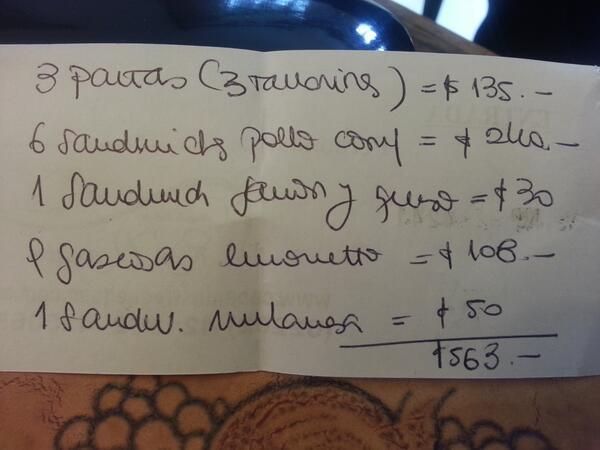 3 pastas (3 tallarines) = $ 135.-
6 Sandwichs pollo = $ 240.-
1 Sandwich jamón y queso = $30
9 gaseosas limonetto = $ 108.-
1 Sandw. milanesa = $ 50
$563.-